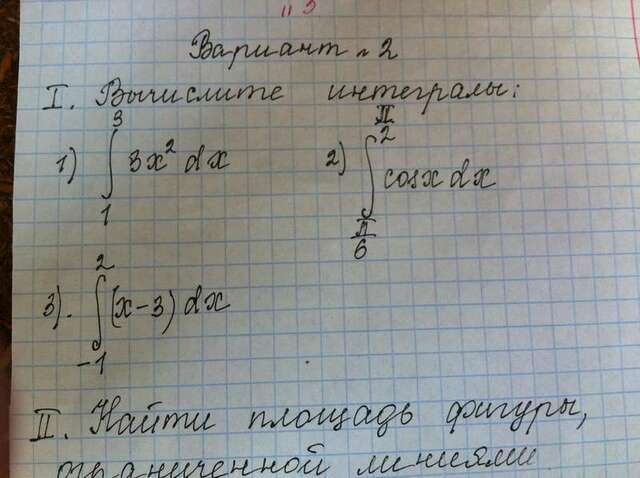 Вариант №2
I. Вычислите интегралы:
1) ∫₁³ 3x² dx 2) ∫_{π/6}^{π/2} cosx dx
3). ∫₋₁² (x-3) dx
II. Найти площадь фигуры,
ограниченной линиями